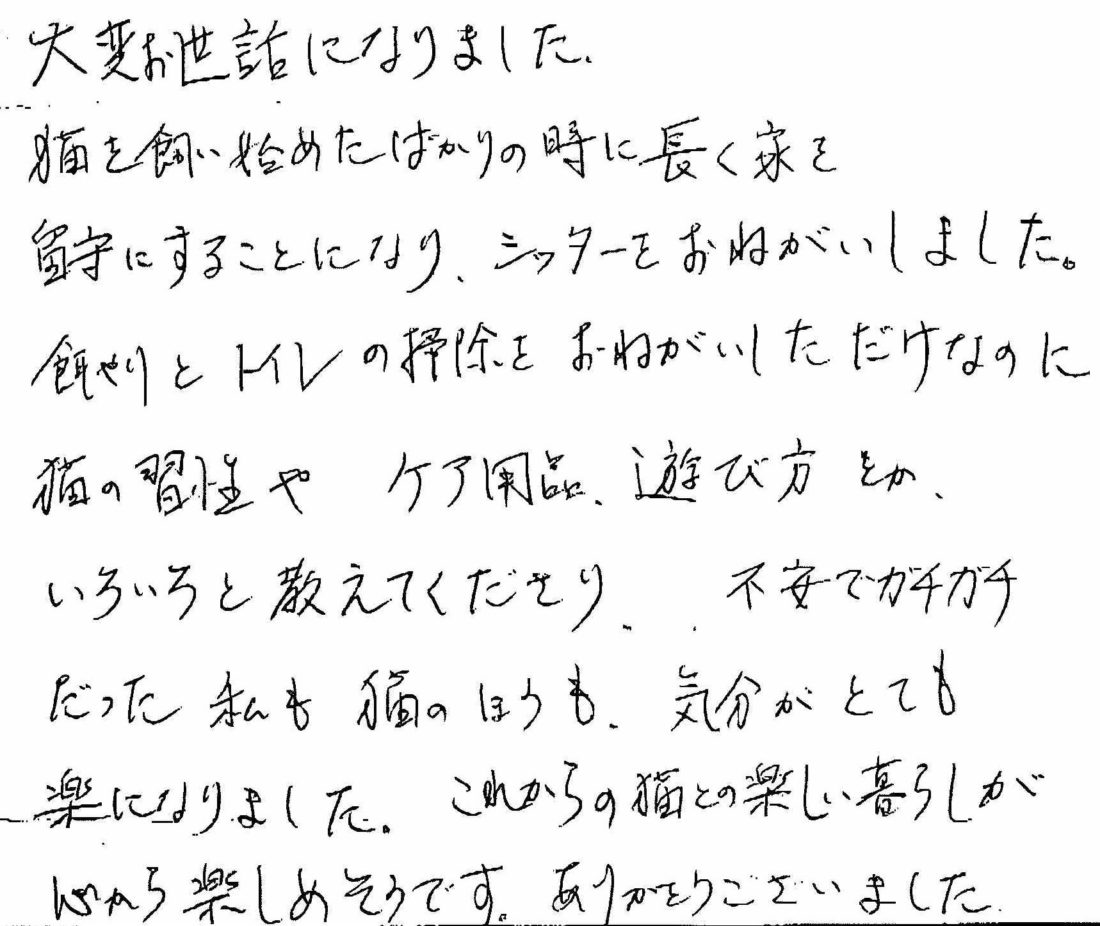 大変お世話になりました.
猫を飼い始めたばかりの時に長く家を
留守にすることになり、シッターをおねがいしました。
餌やりとトイレの掃除をおねがいしただけなのに
猫の習性や ケア用品、遊び方とか、
いろいろと教えてくださり、 不安でガチガチ
だった私も猫のほうも、気分がとても
楽になりました。これからの猫との楽しい暮らしが
心から楽しめそうです。ありがとうございました.